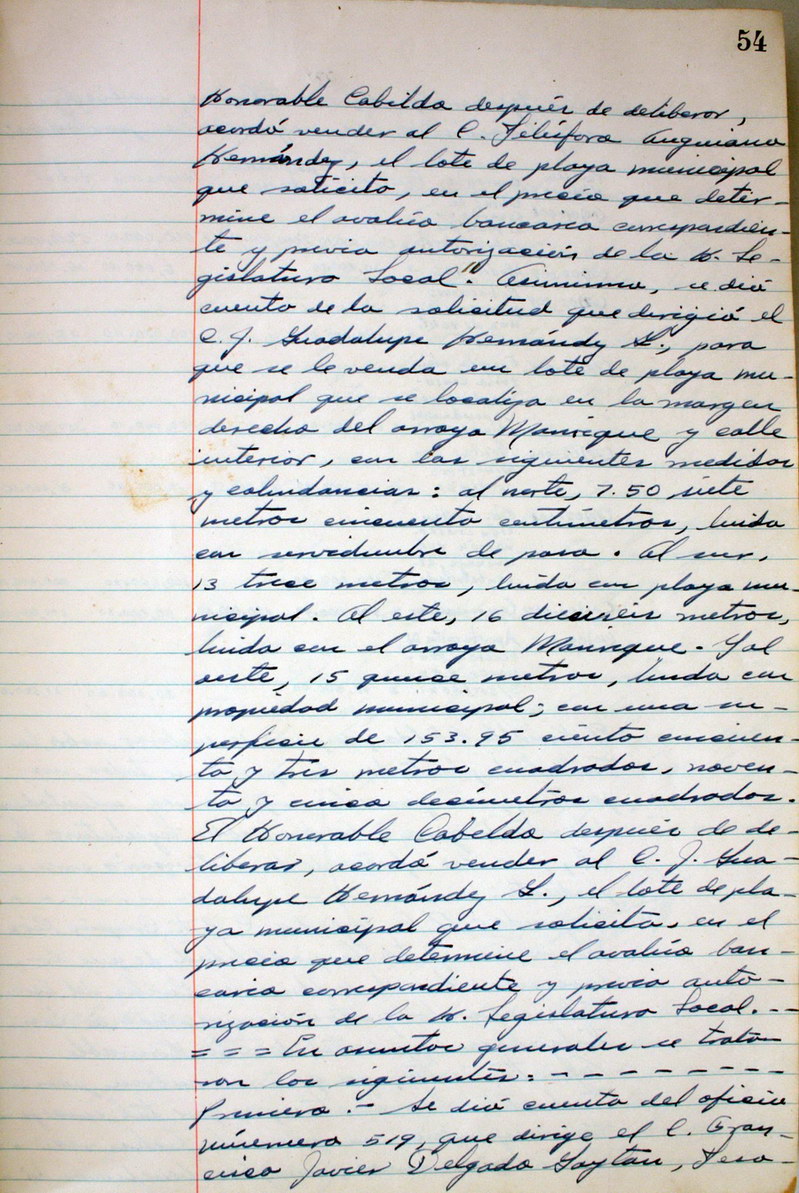 54
Honorable Cabildo después de deliberar,
acordó vender al C. Telésforo Anguiano
Hernández, el lote de playa municipal
que solicito, en el precio que deter-
mine el avalúo bancario correspondien-
te y previa autorización de la H. Le-
gislatura Local." Asimismo, se dió
cuenta de la solicitud que dirigió el
C. J. Guadalupe Hernández L., para
que se le venda un lote de playa mu-
nicipal que se localiza en la margen
derecha del arroyo Manrique y calle
interior, con las siguientes medidas
y colindancias: al norte, 7.50 siete
metros cincuenta centímetros, linda
con servidumbre de paso. Al sur,
13 trece metros, linda con playa mu-
nicipal. Al este, 16 dieciséis metros,
linda con el arroyo Manrique. Y al
oeste, 15 quince metros, linda con
propiedad municipal; con una su-
perficie de 153.95 ciento cincuen-
ta y tres metros cuadrados, noven-
ta y cinco decímetros cuadrados.
El Honorable Cabildo después de de-
liberar, acordó vender al C. J. Gua-
dalupe Hernández L., el lote de pla-
ya municipal que solicita, en el
precio que determine el avalúo ban-
cario correspondiente y previa auto-
rización de la H. Legislatura Local. - -
= = = En asuntos generales se trata-
ron los siguientes: - - - - - - - -
Primero. - Se dió cuenta del oficio
número 519, que dirige el C. Fran-
cisco Javier Delgado Gaytán, Teso-